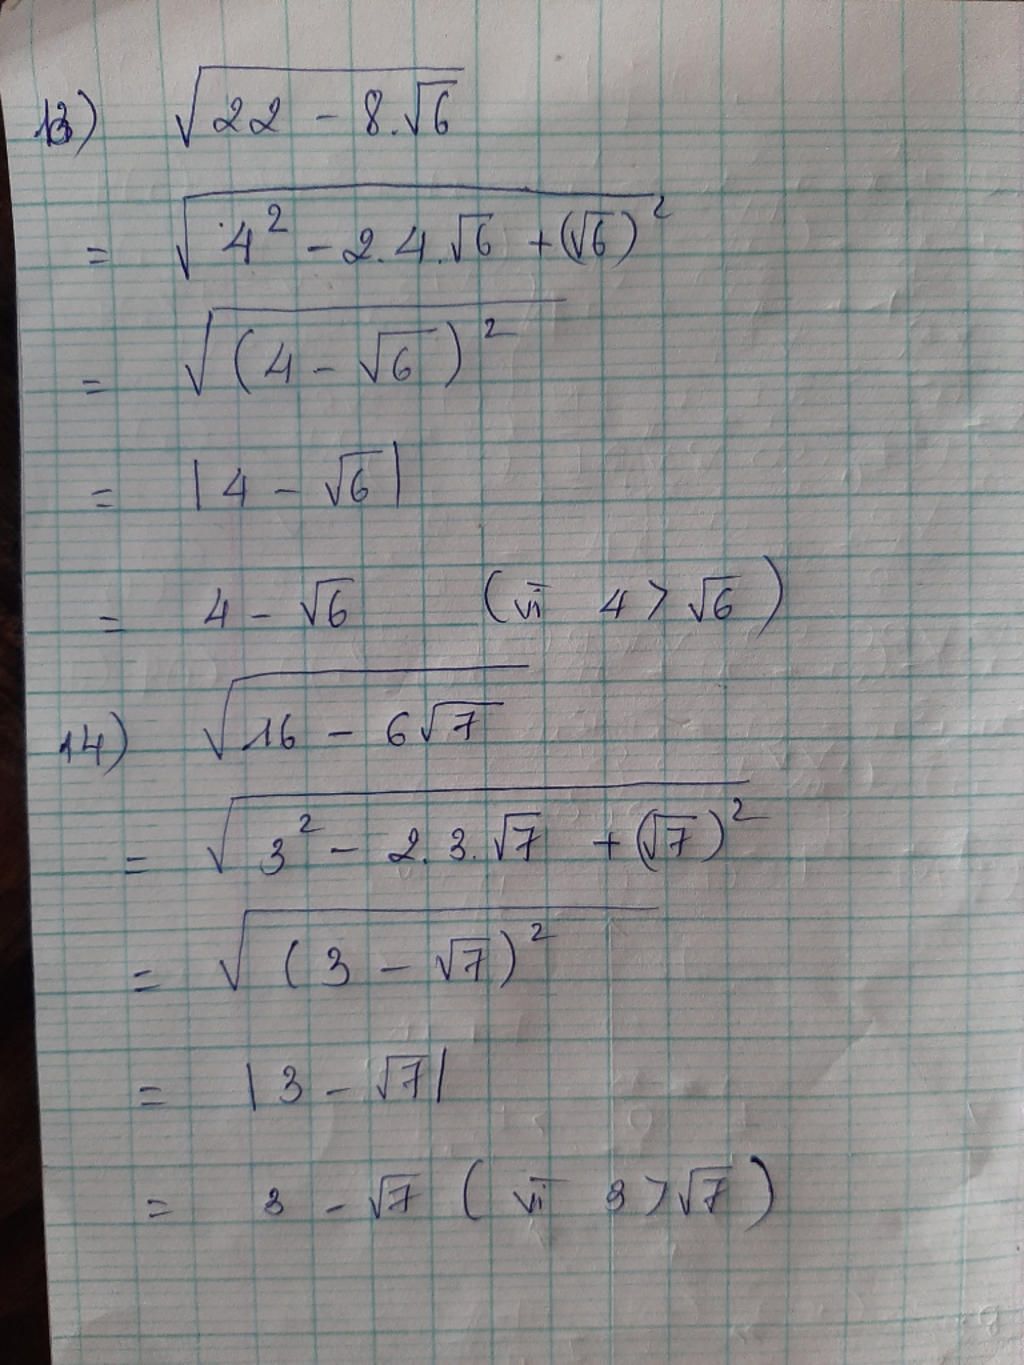 13) √(22 - 8.√6)
= √(4² - 2.4.√6 + (√6)²)
= √((4 - √6)²)
= |4 - √6|
= 4 - √6 (vì 4 > √6)
14) √(16 - 6√7)
= √(3² - 2.3.√7 + (√7)²)
= √((3 - √7)²)
= |3 - √7|
= 3 - √7 (vì 3 > √7)